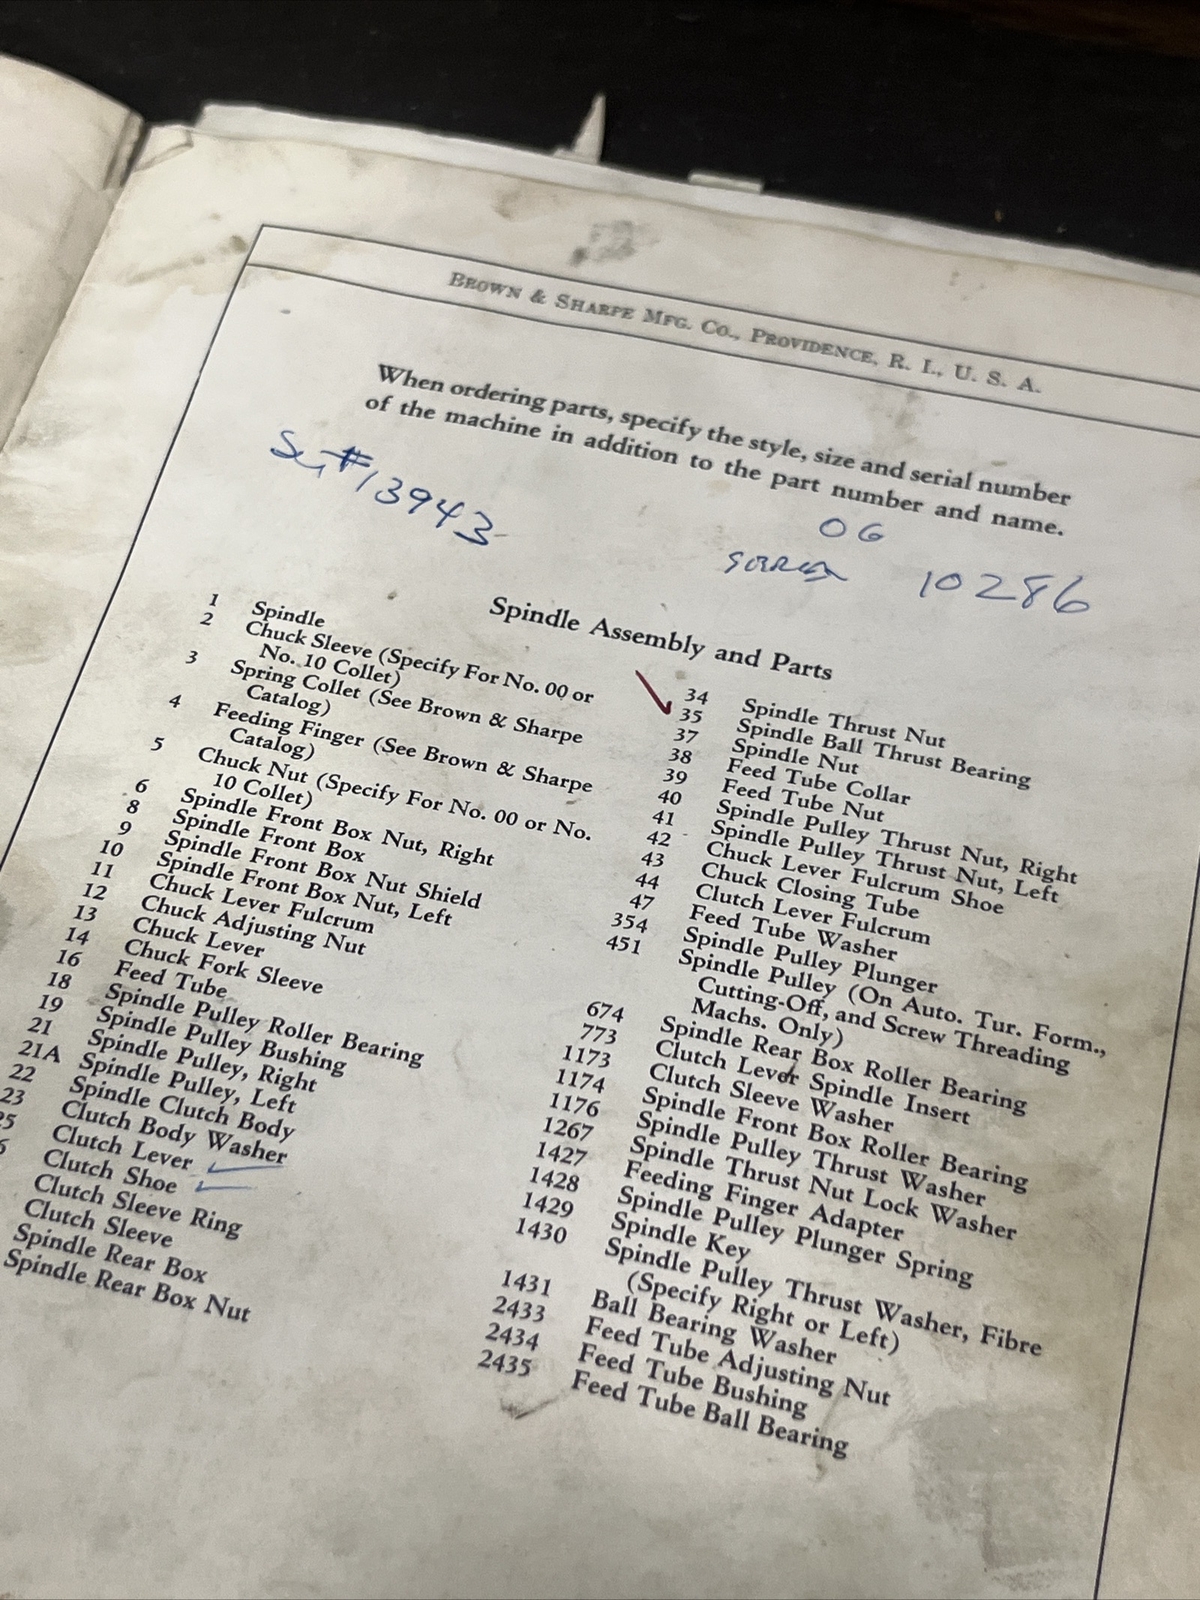 BROWN & SHARPE MFG. CO., PROVIDENCE, R. I., U. S. A.
When ordering parts, specify the style, size and serial number
of the machine in addition to the part number and name.
#13943
OG
10286
Spindle Assembly and Parts
1 Spindle
2 Chuck Sleeve (Specify For No. 00 or
No. 10 Collet)
3 Spring Collet (See Brown & Sharpe
Catalog)
4 Feeding Finger (See Brown & Sharpe
Catalog)
5 Chuck Nut (Specify For No. 00 or No.
10 Collet)
6 Spindle Front Box Nut, Right
8 Spindle Front Box
9 Spindle Front Box Nut Shield
10 Spindle Front Box Nut, Left
11 Chuck Lever Fulcrum
12 Chuck Adjusting Nut
13 Chuck Lever
14 Chuck Fork Sleeve
16 Feed Tube
18 Spindle Pulley Roller Bearing
19 Spindle Pulley Bushing
21 Spindle Pulley, Right
21A Spindle Pulley, Left
22 Spindle Clutch Body
23 Clutch Body Washer
5 Clutch Lever
6 Clutch Shoe
Clutch Sleeve Ring
Clutch Sleeve
Spindle Rear Box
Spindle Rear Box Nut
34 Spindle Thrust Nut
35 Spindle Ball Thrust Bearing
37 Spindle Nut
38 Feed Tube Collar
39 Feed Tube Nut
40 Spindle Pulley Thrust Nut, Right
41 Spindle Pulley Thrust Nut, Left
42 Chuck Lever Fulcrum Shoe
43 Chuck Closing Tube
44 Clutch Lever Fulcrum
47 Feed Tube Washer
354 Spindle Pulley Plunger
451 Spindle Pulley (On Auto. Tur. Form.,
Cutting-Off, and Screw Threading
Machs. Only)
674 Spindle Rear Box Roller Bearing
773 Clutch Lever Spindle Insert
1173 Clutch Sleeve Washer
1174 Spindle Front Box Roller Bearing
1176 Spindle Pulley Thrust Washer
1267 Spindle Thrust Nut Lock Washer
1427 Feeding Finger Adapter
1428 Spindle Pulley Plunger Spring
1429 Spindle Key
1430 Spindle Pulley Thrust Washer, Fibre
(Specify Right or Left)
1431 Ball Bearing Washer
2433 Feed Tube Adjusting Nut
2434 Feed Tube Bushing
2435 Feed Tube Ball Bearing